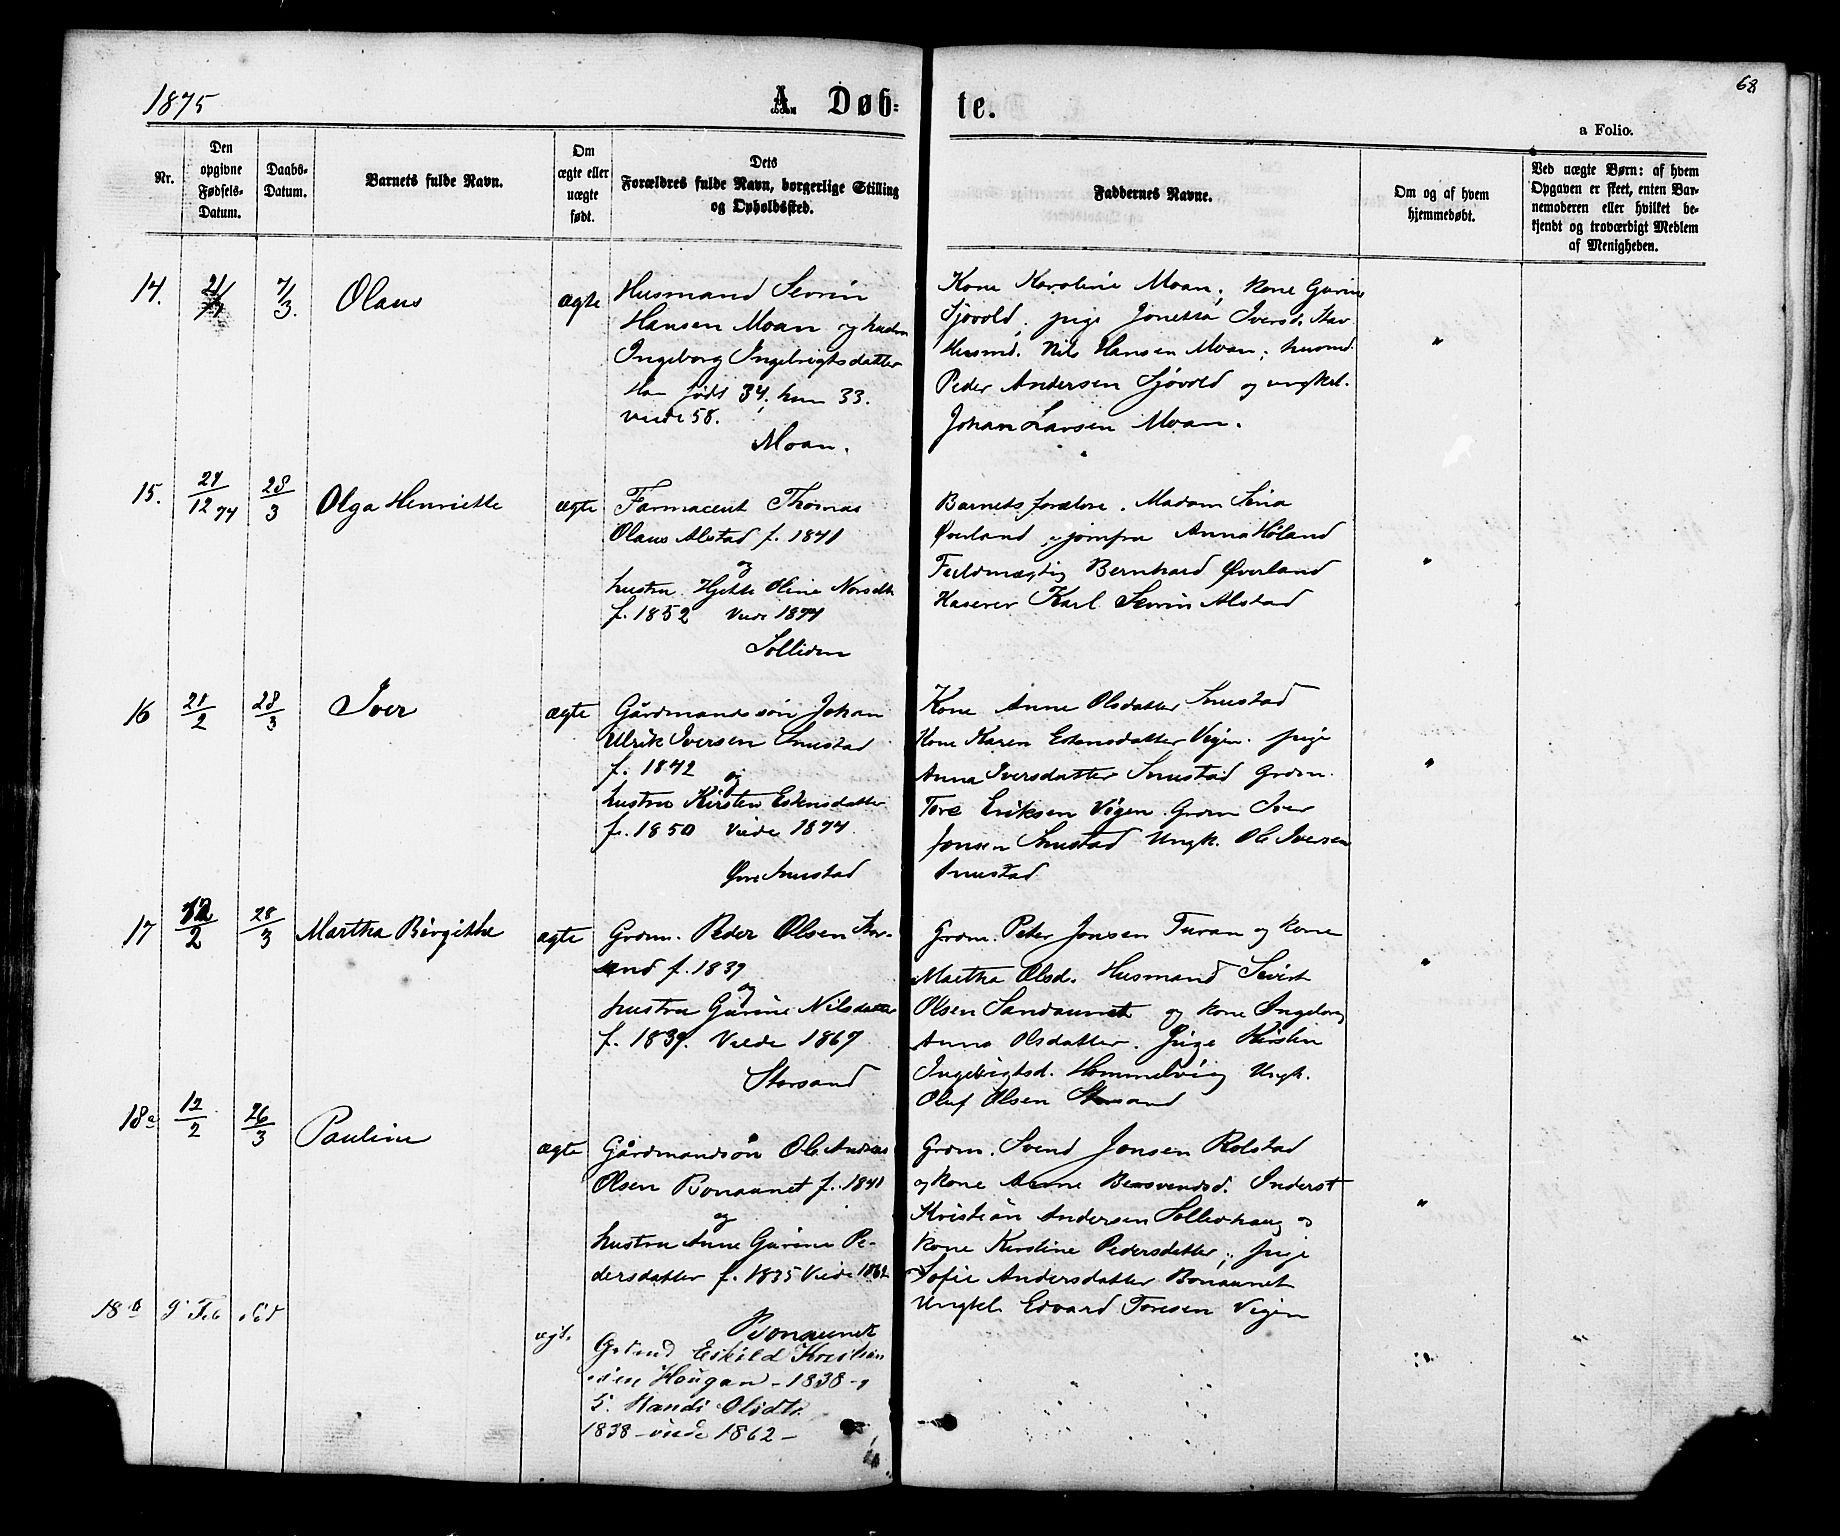 1875
A. Døb-
te.
68
a Folio.
Nr.
Den
opgivne
Fødsels-
Datum.
Daabs-
Datum.
Barnets fulde Navn.
Om
ægte eller
uægte
født.
Dets
Forældres fulde Navn, borgerlige Stilling
og Opholdssted.
Faddernes Navne.
Om og af hvem
hjemmedøbt.
Ved uægte Børn: af hvem
Opgaven er skeet, enten Bar-
nemoderen eller hvilket be-
kjendt og troværdigt Medlem
af Menigheden.
14.
7/3.
Olaus
ægte
Husmand Sevrin
Hansen Moan og hustru
Ingeborg Ingebrigtsdatter
Han født 34, hun 33.
viede 58.
Moan.
Kone Karoline Moan, kone Gurine
Sjøvold, pige Jonetta Iversd. Hav
Husmd. Nils Hansen Moan, husmd.
Peder Andersen Sjøvold og ungkarl.
Johan Larsen Moan.
"
15.
27/12 74
28/3
Olga Henriette
ægte
Farmaceut Thomas
Olaus Alstad f. 1841
og
hustru Hjette Oline Norsdtr
f. 1852 viede 1874
Solliden
Barnets forældre. Madam Sina
Øverland, jomfru Anna Høland
Fuldmægtig Bernhard Øverland
Kaserer Karl Sevrin Alstad
"
16
21/2
28/3
Iver
ægte
Gårdmandssøn Johan
Ulrik Iversen Smustad
f. 1842
og
hustru Kirsten Estensdatter
f. 1850 viede 1874.
Øvre Smustad
Kone Anne Olsdatter Smustad
Kone Karen Estensdatter Vigen. pige
Anna Iversdatter Smustad Grdm.
Tore Eriksen Vigen. Grdm Iver
Jonsen Smustad Ungk. Ole Iversen
Smustad
"
17
12/2
28/3
Martha Birgitthe
ægte
Grdm. Peder Olsen Stor-
sand f. 1839
og
hustru Gurine Nilsdatter
f. 1839. Viede 1867
Storsand
Grdm. Peter Jonsen Turan og kone
Martha Olsd. Husmand Sivert
Olsen Sandaunet og kone Ingeborg
Anna Olsdatter. Pige Kirstin
Ingebrigtsd. Hommelvig Ungk.
Oluf Olsen Storsand
"
18a
12/2
26/3
Pauline
ægte
Gårdmandsøn Ole Andreas
Olsen Bonaunet f. 1841
og
hustru Anne Gurine Pe-
dersdatter f. 1835 Viede 1862
Bonaunet
Grdm. Svend Jonsen Rolstad
og kone Anne Bersvendsd. Inderst
Kristian Andersen Solledhaug og
kone Kirstine Pedersdatter, pige
Sofie Andersdatter Bonaunet
Ungkl. Edvard Toresen Vigen
"
18b
9 Feb
ægt.
Grdmd Eskild Kristian
sen Haugan - 1838 - og
Olsdtr.
1838 - viede 1862 -
"